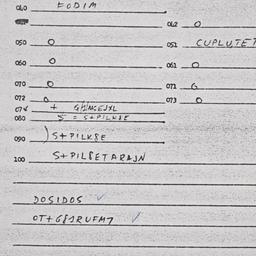 040 FODIM
042 O
050 O
051 CUPLUTET
060 O
061 O
070 O
071 G
072 O
073 O
074 +
080 5 = S+PILKSE
090 )S+PILKSE
100 S+PILSETARAJN
DOSIDOS ✓
OT+G8JRUFM7 ✓